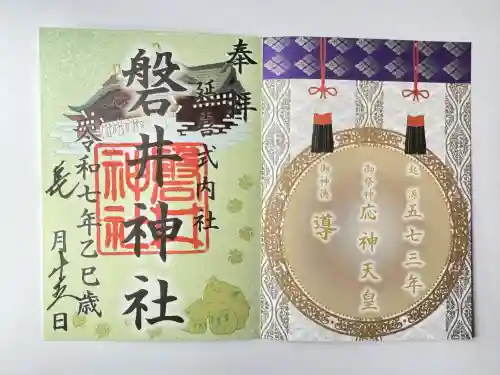 奉拝
延喜式内社
磐井神社
磐井神社
令和七年乙巳歳
月十五日
起源五七三年
御祭神 応神天皇
御神徳 導